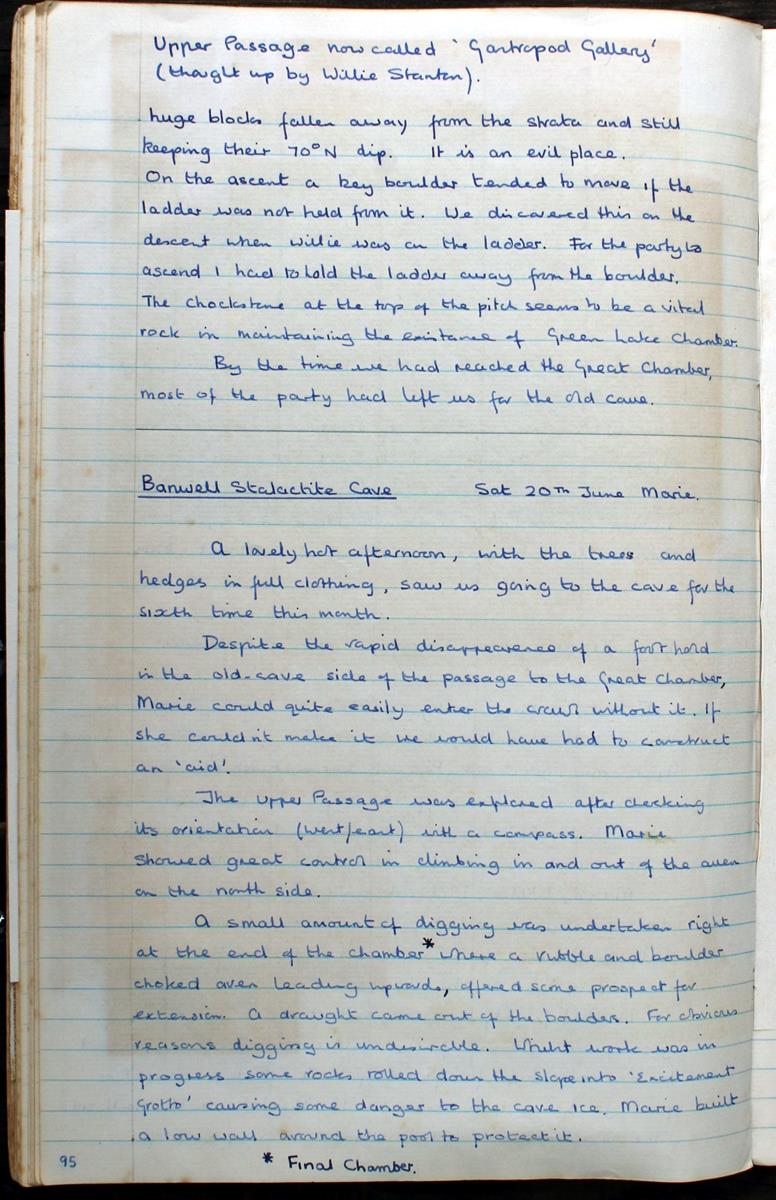 Upper Passage now called 'Gastropod Gallery'
(thought up by Willie Stanton).
huge blocks fallen away from the strata and still
keeping their 70° N dip. It is an evil place.
On the ascent a key boulder tended to move if the
ladder was not held from it. We discovered this on the
descent when Willie was on the ladder. For the party to
ascend I had to hold the ladder away from the boulder.
The chockstone at the top of the pitch seems to be a vital
rock in maintaining the existance of Green Lake Chamber.
By the time we had reached the Great Chamber,
most of the party had left us for the old cave.
Banwell Stalactite Cave Sat 20TH June Marie.
A lovely hot afternoon, with the trees and
hedges in full clothing, saw us going to the cave for the
sixth time this month.
Despite the rapid disappearence of a foot hold
in the old-cave side of the passage to the Great Chamber,
Marie could quite easily enter the without it. If
she couldn't make it we would have had to construct
an 'aid'.
The Upper Passage was explored after checking
its orientation (west/east) with a compass. Marie
showed great control in climbing in and out of the aven
on the north side.
A small amount of digging was undertaken right
at the end of the chamber* where a rubble and boulder
choked aven leading upwards, offered some prospect for
extension. A draught came out of the boulders. For obvious
reasons digging is undesirable. Whilst work was in
progress some rocks rolled down the slope into 'Excitement
Grotto' causing some danger to the cave ice. Marie built
a low wall around the pool to protect it.
95
* Final Chamber.